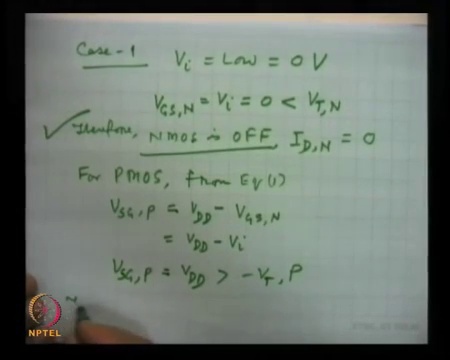 Case-1 Vi = Low = 0 V
VGS,N = Vi = 0 < VT,N
Therefore, NMOS is OFF, ID,N = 0
For PMOS, from Eq(1)
VSG,P = VDD - VGS,N
= VDD - Vi
VSG,P = VDD > -VT,P
NPTEL